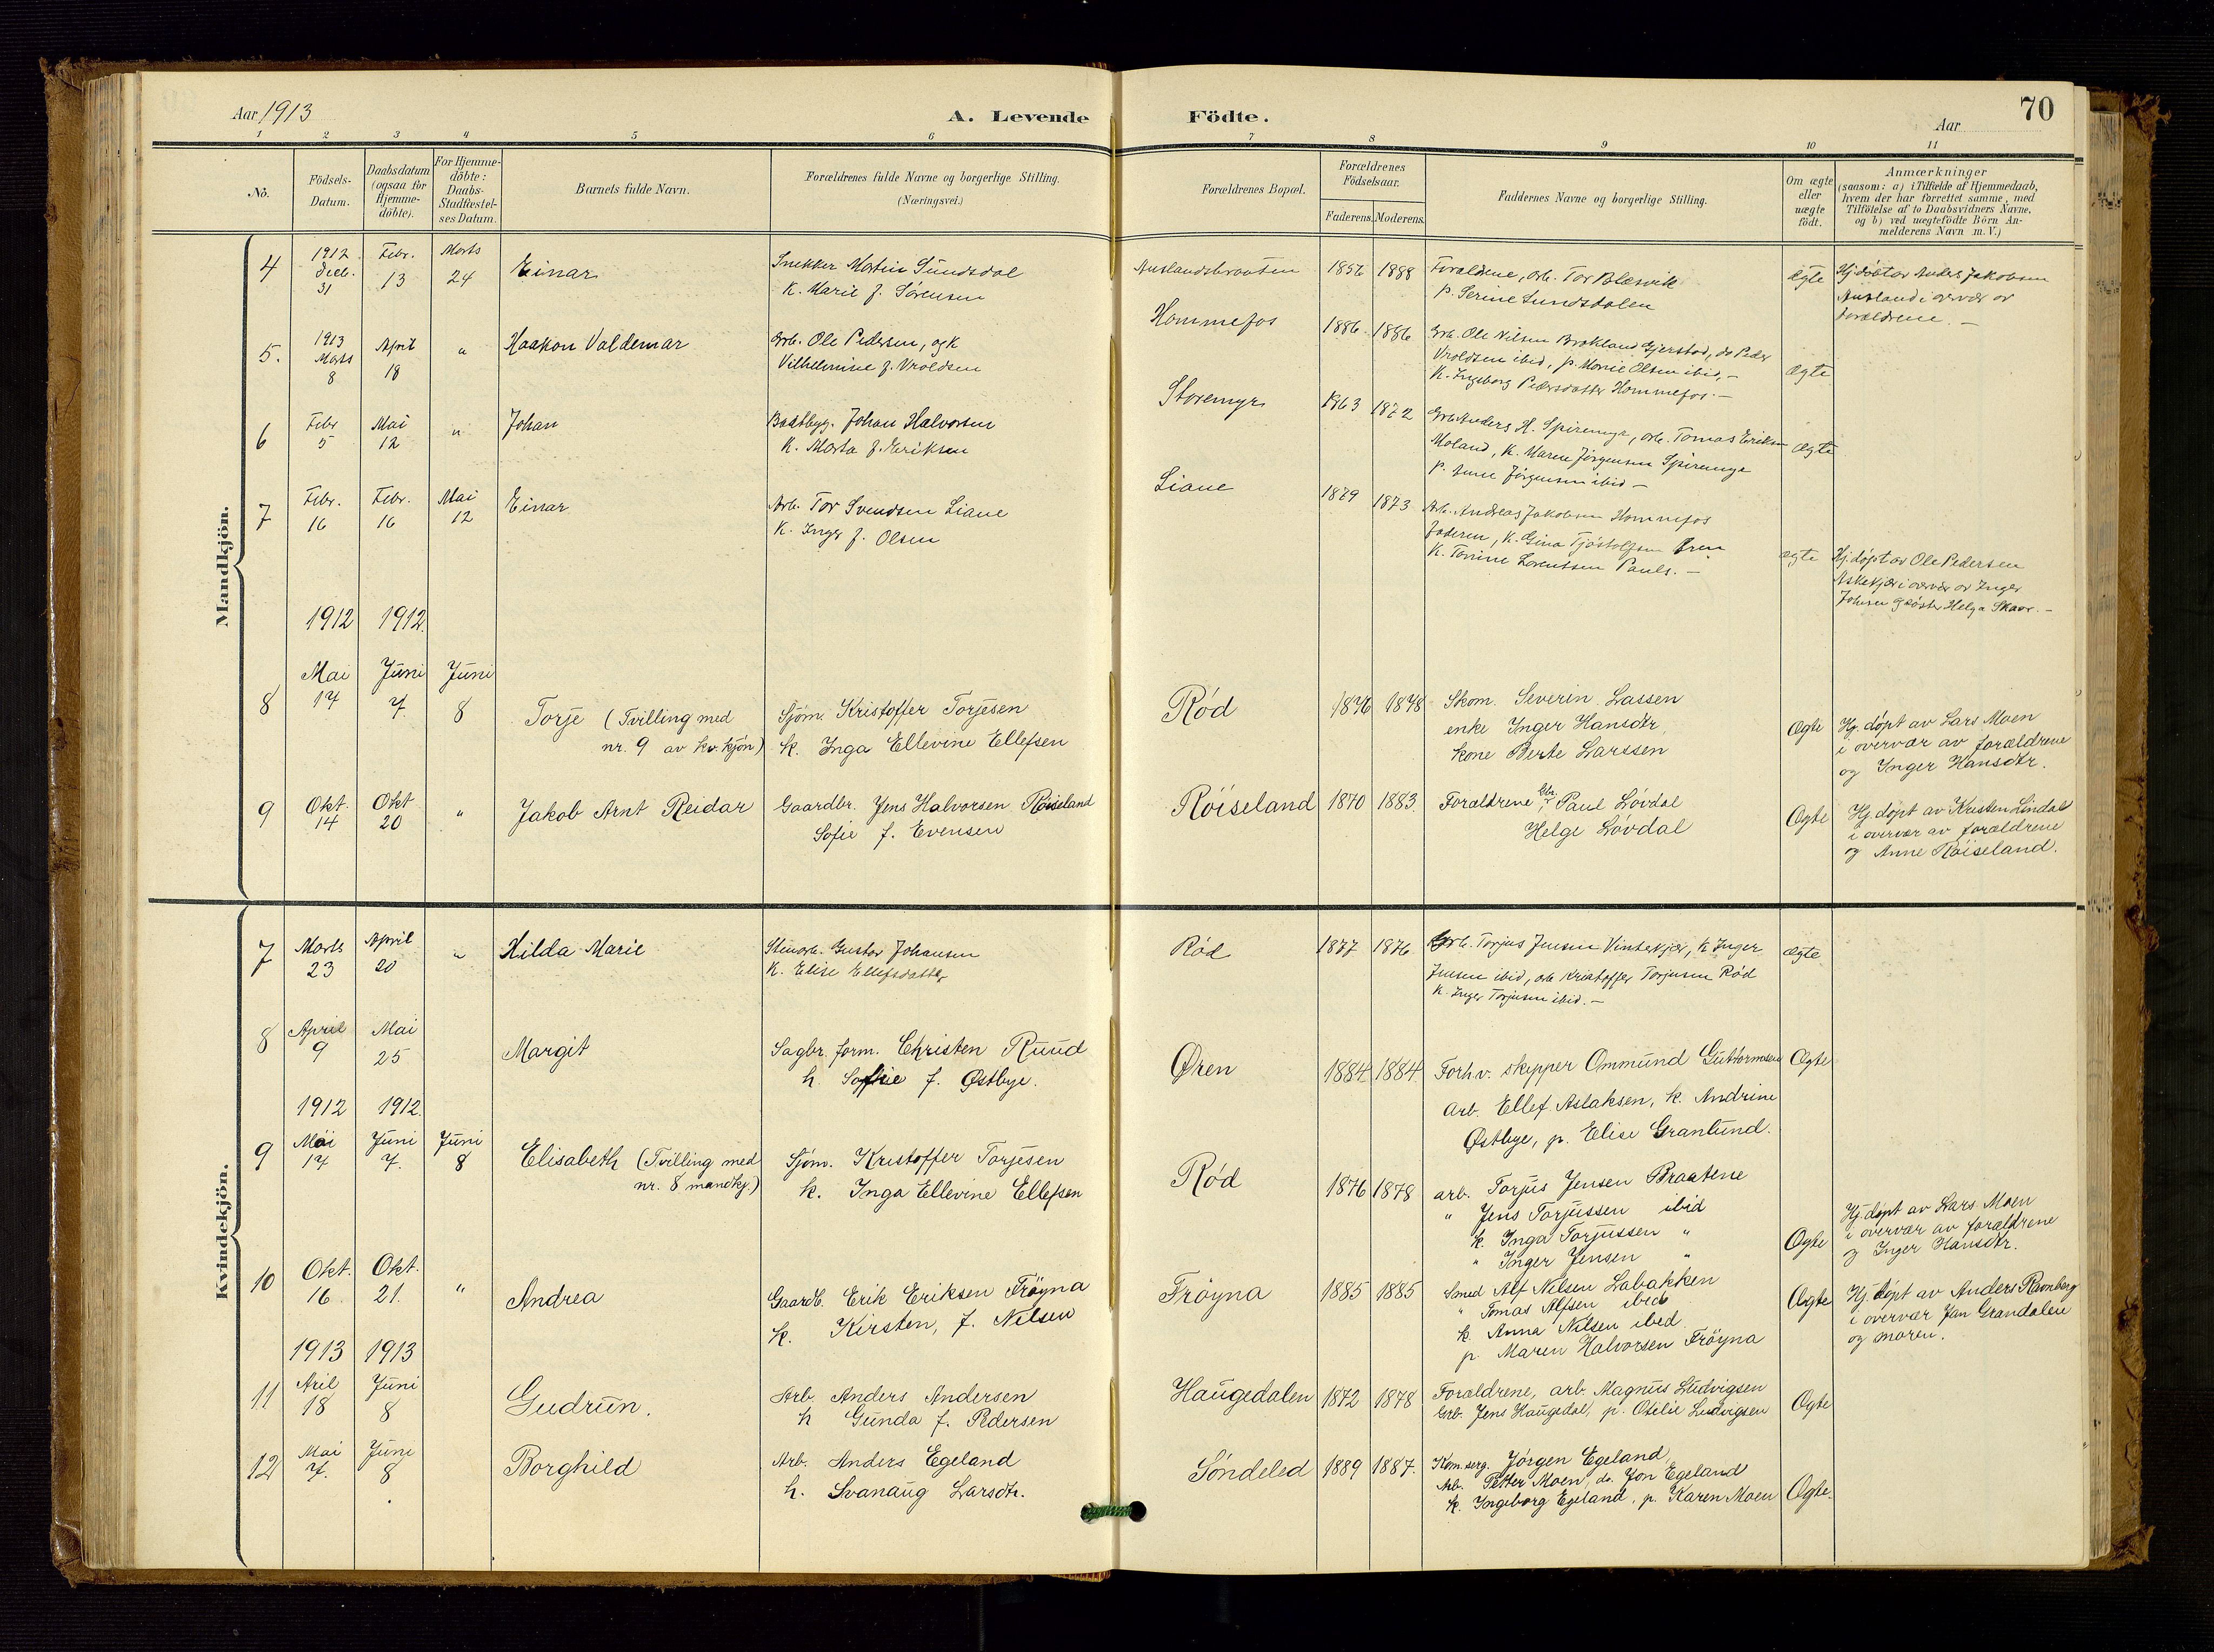 Aar 1913
A. Levende Födte.
Aar
70
1 2 3 4 5 6 7 8 9 10 11
No.
Födsels-Datum.
Daabsdatum (ogsaa for Hjemme-döbte).
For Hjemme-döbte: Daabs-Stadfæstel-ses Datum.
Barnets fulde Navn.
Forældrenes fulde Navne og borgerlige Stilling. (Næringsvei.)
Forældrenes Bopæl.
Forældrenes Födselsaar.
Faderens. Moderens.
Faddernes Navne og borgerlige Stilling.
Om ægte eller uægte födt.
Anmærkninger
(saasom: a) i Tilfælde af Hjemmedaab,
hvem der har forrettet samme, med
Tilföielse af to Daabsvidners Navne,
og b) ved uægtefödte Börn An-
melderens Navn m. V.)
Mandkjön.
4 1912 Decb. 31 Febr. 13 Marts 24 Einar
Snekker Martin Sundsdal
K. Marie f. Sørensen
Auslandsbraaten 1856 1888
Forældrene, arb. Tor Blesvik
p. Serine Sundsdalen
Ægte
Hj. döbt av Anders Jakobsen
Ausland i overvær av
forældrene. —
5. 1913 Marts 8 April 18 " Haakon Valdemar
Grb. Ole Pedersen, og K
Vilhelmine f. Vroldsen
Hommefos 1886 1886
Grb. Ole Nilsen Brokland Gjerstad, do Peder
Vroldsen ibid, p. Marie Olsen ibid, —
K. Ingeborg Pedersdatter Hommefos. —
Ægte
6 Febr 5 Mai 12 " Johan
Baatbyg. Johan Halvorsen
K. Marta f. Eriksen
Storemyr 1863 1872
Grb. Anders H. Spiremyr, arb. Tomas Eriksen
Moland, K. Maren Jørgensen Spiremyr
p. Anne Jørgensen ibid —
Ægte
7 Febr. 16 Febr. 16 Mai 12 Einar
Arb. Tor Svendsen Liane
K. Inga f. Olsen
Liane 1879 1873
Arb. Andreas Jakobsen Hommefos
Faderen, K. Gina Tjöstolfsen Øren
K. Tomine Lorentsen Pauls. —
ægte
Hj. døpt av Ole Pedersen
Askekjær i overvær av Inger
Johnsen g. Søster Helga Skaar. —
1912 1912.
8 Mai 14 Juni 7. Juni 8
Torje (Tvilling med
nr. 9 av kv. kjön)
Sjøm. Kristoffer Torjesen
k. Inga Ellevine Ellefsen
Rød 1876 1878
Skom. Severin Lassen
enke Inger Hansdtr.
kone Berte Larssen
Ægte
Hj. døpt av Lars Moen
i overvær av forældrene
og Inger Hansdtr.
9 Okt. 14 Okt 20 " Jakob Arnt Reidar
Gaardbr. Jens Halvorsen Røiseland
Sofie f. Evensen
Røiseland 1870 1883
Forældrene Gbr. Paul Løvdal
Helge Løvdal
Ægte
Hj. døpt av Kristen Lindal
i overvær av forældrene
og Anne Røiseland.
Kvindekjön.
7 Marts 23 April 20 " Hilda Marie
Stenarb. Gustav Johansen
K. Elise Ellefsdatter
Rød 1877 1876
Grb. Torjus Jensen Vintekjær, K Inger
Jensen ibid, arb Kristoffer Torjusen Rød
K. Inger Torjusen ibid. —
ægte
8 April 9 Mai 25 Margit
Sagbr. form. Christen Ruud
h. Sofie f. Østbye.
Øren 1884 1884.
Forh.v. skipper Ommund Guttormsen
arb. Ellef Aslaksen, k. Andrine
Østbye, p. Elise Granlund.
Ægte
1912 1912.
9 Mai 14 Juni 7. Juni 8
Elisabeth (Tvilling med
nr. 8 mandkj.)
Sjøm. Kristoffer Torjesen
k. Inga Ellevine Ellefsen
Rød 1876 1878
arb. Torjus Jensen Braatene
" Jens Torjussen ibid
k. Inga Torjussen "
" Inger Jensen "
Ægte
Hj. døpt av Lars Moen
i overvær av forældrene
og Inger Hansdtr.
10 Okt. 16. Okt. 21. " Andrea
Gaardb. Erik Eriksen Frøyna
k. Kirsten, f. Nilsen
Frøyna 1885 1885
Smed Alf Nilsen Labakken
" Tomas Alfsen ibid
k. Anna Nilsen ibid
p. Maren Halvorsen Frøyna
Ægte
Hj. døpt av Anders Ramberg
i overvær Jan Grandalen
og moren.
1913 1913
11 Aril 18 Juni 8 Gudrun.
Arb. Anders Andersen
h Gunda f. Pedersen
Haugedalen 1872 1878
Forældrene, arb. Magnus Ludvigsen
Grb. Jens Haugedal, p. Otilie Ludvigsen
Ægte
12 Mai 7. Juni 8 Borghild
Arb. Anders Egeland
h. Svanaug Larsdtr.
Søndeled 1889 1887.
Kom.serg. Jørgen Egeland
Arb. Petter Moen, do. Jon Egeland
k. Ingeborg Egeland, p. Karen Moen
Ægte.